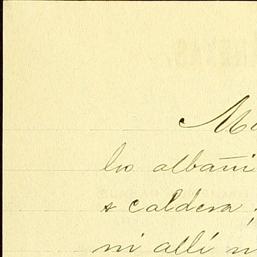 M
los albañi
s caldera ;
ni allí n